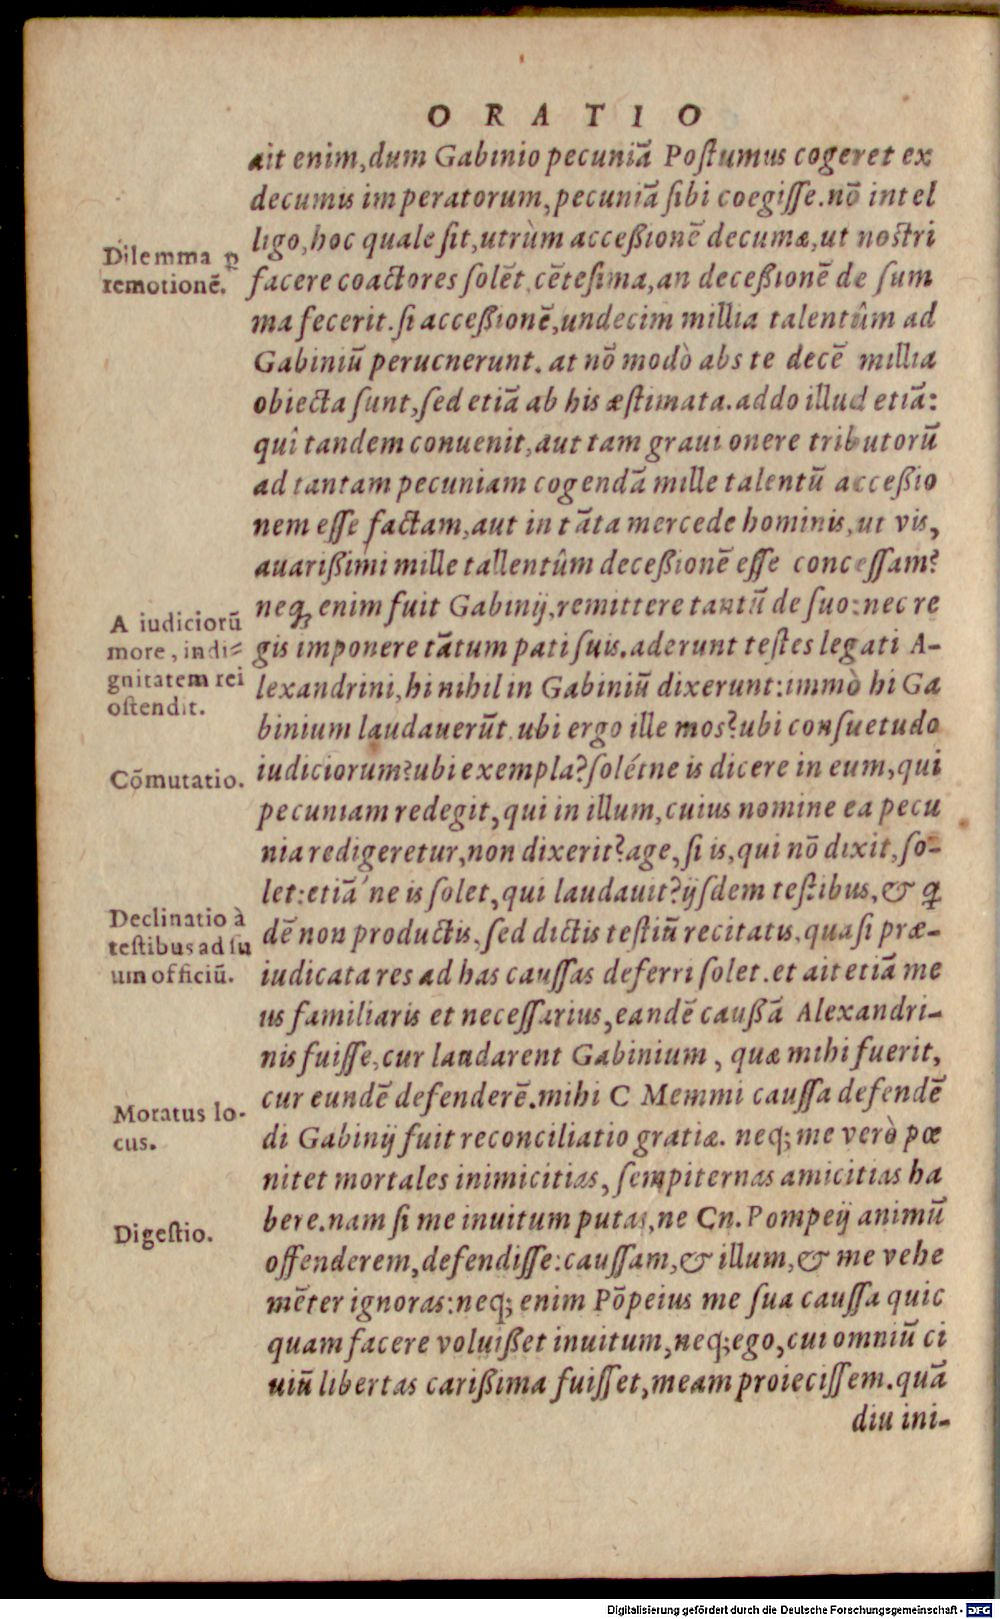 ORATIO
ait enim, dum Gabinio pecuniā Postumus cogeret ex
decumis imperatorum, pecuniā sibi coegisse. nō intel
ligo, hoc quale sit, utrùm accessionē decumæ, ut nostri
Dilemma ꝑ
remotionē.
facere coactores solēt, cētesima, an decessionē de sum
ma fecerit. si accessionē, undecim millia talentûm ad
Gabiniū peruenerunt. at nō modò abs te decē millia
obiecta sunt, sed etiā ab his æstimata. addo illud etiā:
quî tandem conuenit, aut tam graui onere tributorū
ad tantam pecuniam cogendā mille talentū accessio
nem esse factam, aut in tāta mercede hominis, ut vis,
auarissimi mille tallentûm decessionē esse concessam?
neq; enim fuit Gabinij, remittere tantū de suo: nec re
A iudiciorū
more, indi=
gnitatem rei
ostendit.
gis imponere tātum pati suis. aderunt testes legati A-
lexandrini, hi nihil in Gabiniū dixerunt: immò hi Ga
binium laudauerūt. ubi ergo ille mos? ubi consuetudo
Cōmutatio.
iudiciorum? ubi exempla? solétne is dicere in eum, qui
pecuniam redegit, qui in illum, cuius nomine ea pecu
nia redigeretur, non dixerit? age, si is, qui nō dixit, so-
let: etiā ne is solet, qui laudauit? ijsdem testibus, & q
Declinatio à
testibus ad su
um officiū.
dē non productis, sed dictis testiū recitatis, quasi præ-
iudicata res ad has caussas deferri solet. et ait etiā me
us familiaris et necessarius, eandē caussā Alexandri-
nis fuisse, cur laudarent Gabinium, quæ mihi fuerit,
cur eundē defenderē. mihi C Memmi caussa defendē
Moratus lo-
cus.
di Gabinij fuit reconciliatio gratiæ. neq; me verò pœ
nitet mortales inimicitias, sempiternas amicitias ha
Digestio.
bere. nam si me inuitum putas, ne Cn. Pompeij animū
offenderem, defendisse: caussam, & illum, & me vehe
mēter ignoras: neq; enim Pōpeius me sua caussa quic
quam facere voluisset inuitum, neq; ego, cui omniū ci
uiū libertas carissima fuisset, meam proiecissem. quā
diu ini-
Digitalisierung gefördert durch die Deutsche Forschungsgemeinschaft - DFG